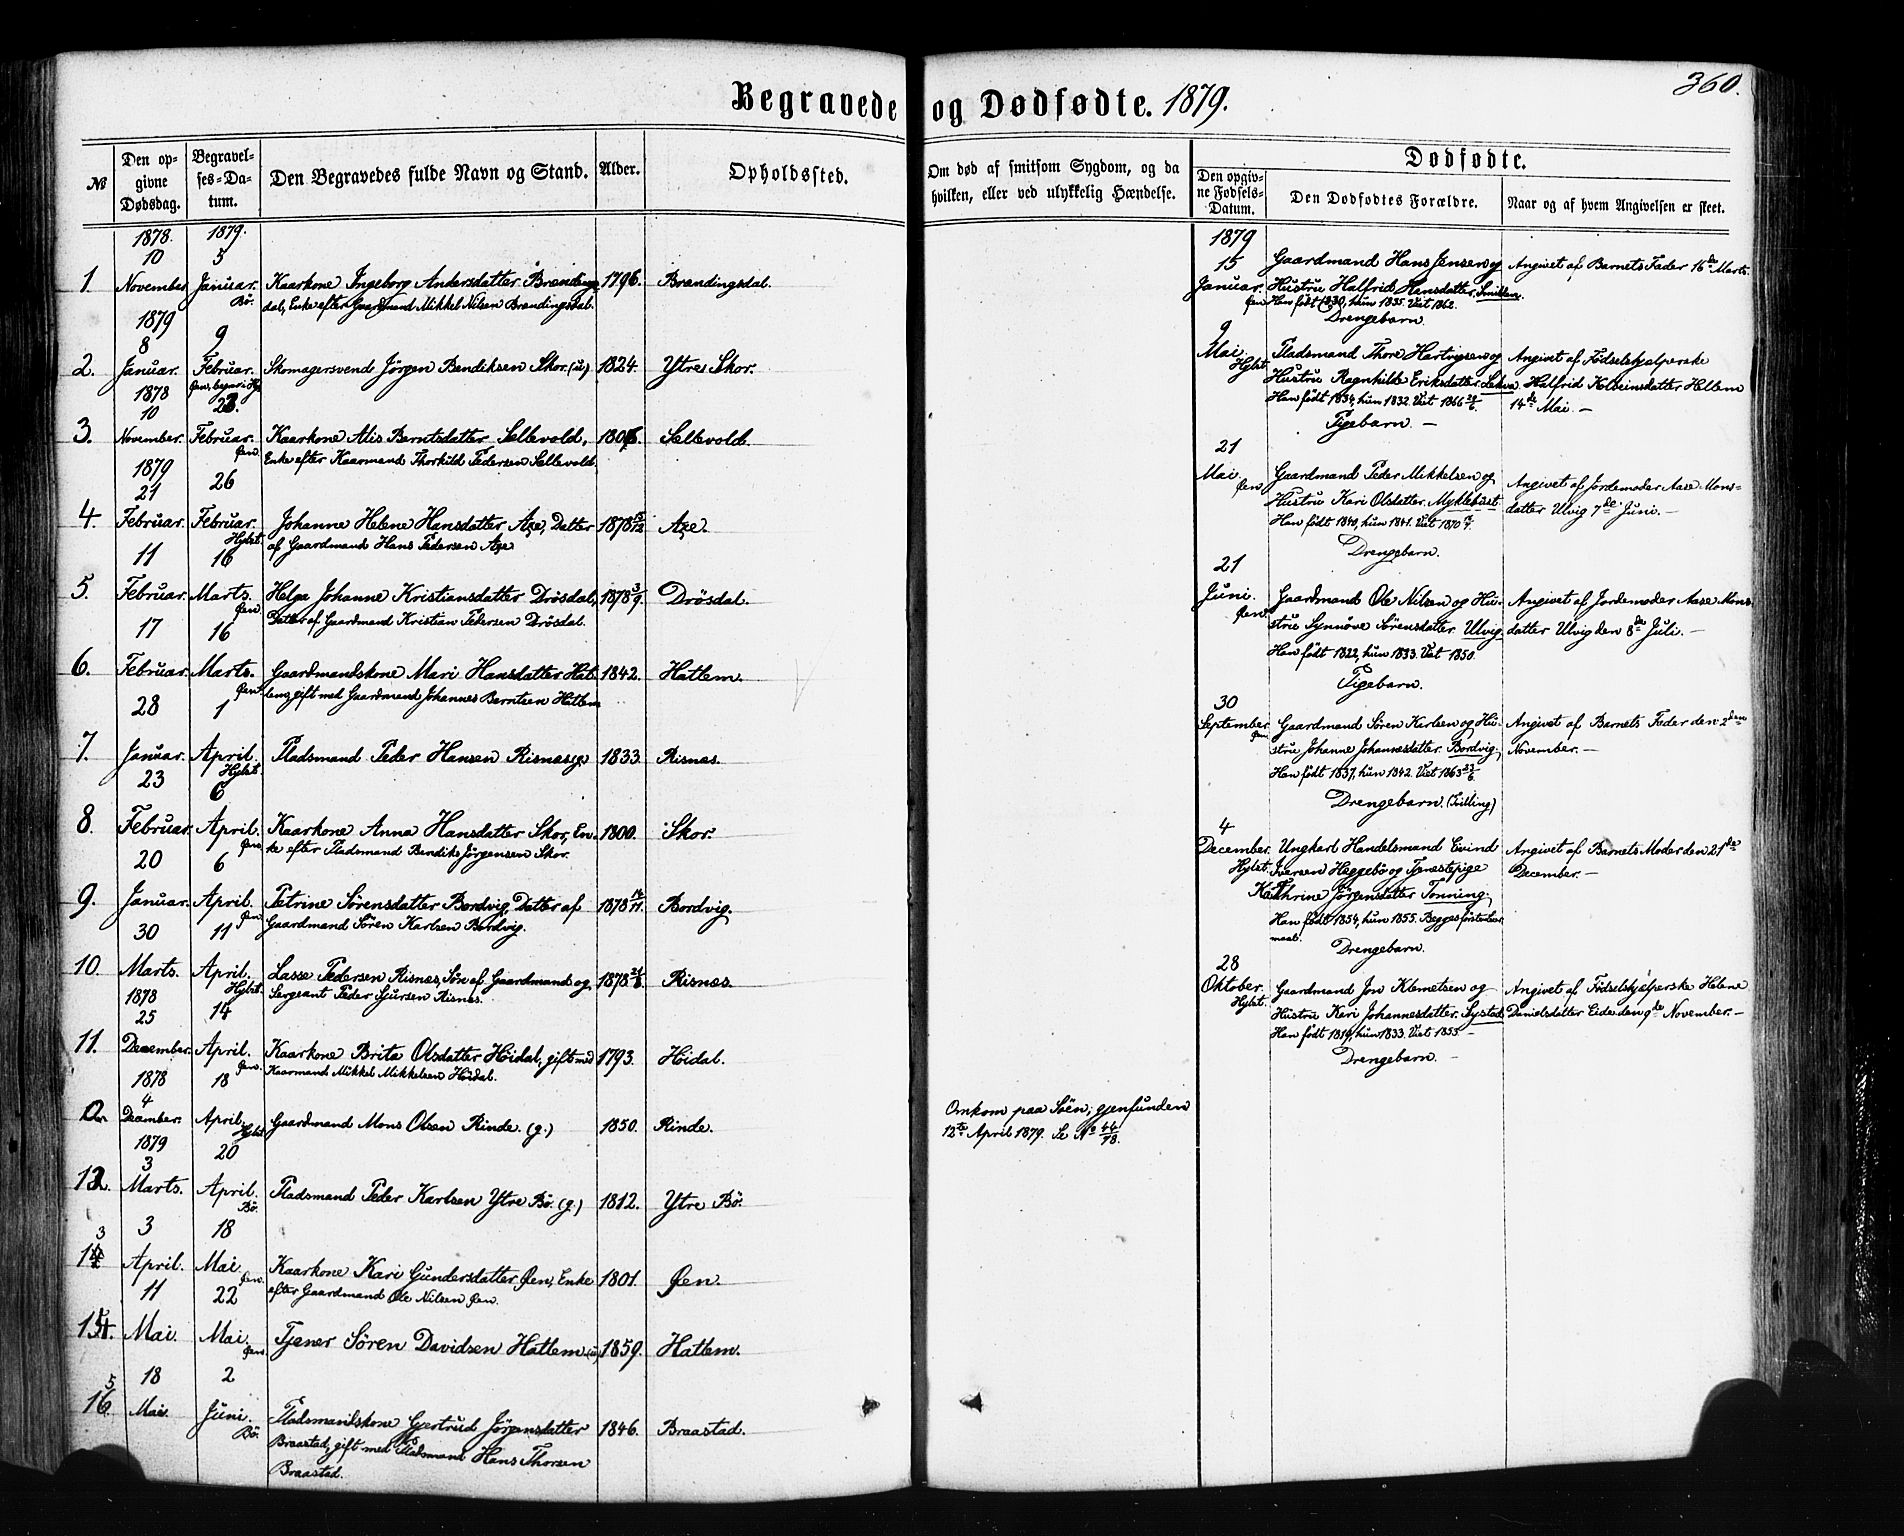 360.
Begravede og Dødfødte. 1879.
№
Den opgivne Dødsdag.
Begravelses-Datum.
Den Begravedes fulde Navn og Stand.
Alder.
Opholdssted.
Om død af smitsom Sygdom, og da hvilken, eller ved ulykkelig Hændelse.
Dødfødte.
Den opgivne Fødsels-Datum.
Den Dødfødtes Forældre.
Naar og af hvem Angivelsen er skeet.
1878. 1879.
10 5
1. November Januar. Kaarkone Ingeborg Andersdatter Brandings- 1796. Brandingsdal.
Bö. dal, Enke efter Gaardmand Mikkel Nilsen Brandingsdal.
1879
8 9
2. Januar. Februar. Skomagersvend Jörgen Bendiksen Skor. (u) 1824. Ytre Skor.
1878
10 23.
3. November. Februar. Kaarkone Alis Berntsdatter Sellevold, Sellevold.
Øen. Enke efter Kaarmand Thorkild Pedersen Sellevold.
1879
21 26
4. Februar. Februar. Johanne Helene Hansdatter Aae, Datter 1878 15/12 Aae.
Hylst. af Gaardmand Hans Pedersen Aae
11 16
5. Februar. Marts. Helga Johanne Kristiansdatter Drösdal, 1878 3/9. Drösdal.
Øen. Datter af Gaardmand Kristian Pedersen Drösdal.
17 16
6. Februar. Marts. Gaardmandskone Mari Hansdatter Hat- 1842. Hatlem.
Øen. lem, gift med Gaardmand Johannes Berntsen Hatlem
28 1
7. Januar. April. Pladsmand Peder Hansen Risnes. 1833. Risnes.
Hylst.
23 6
8. Februar. April. Kaarkone Anna Hansdatter Skor, En- 1800. Skor.
Øen. ke efter Pladsmand Bendik Jörgensen Skor.
20 6
9. Januar. April. Petrine Sörensdatter Bordvig, Datter af 1878 14/11. Bordvig.
Øen. Gaardmand Sören Karlsen Bordvig.
30 11
10. Marts. April. Lasse Pedersen Risnes, Sön af Gaardmand og Risnes.
Hylst. Sergeant Peder Sjursen Risnes.
1878
25 14
11. December. April. Kaarkone Brita Olsdatter Höidal, gift med 1793. Höidal.
Øen. Kaarmand Mikkel Mikkelsen Höidal.
1878
4 18
December. April. Gaardmand Mons Olsen Rinde. (g.) 1850. Rinde. Omkom paa Söen; gjenfunden
Hylst. 12te April 1879. Se No 44/78.
1879
3 20
12. Marts. April. Pladsmand Peder Karlsen Ytre Bö. (g.) 1812. Ytre Bö.
Bö.
3 18
13 April. Mai Kaarkone Kari Gundersdatter Øen, Enke 1801. Øen.
Øen. efter Gaardmand Ole Nilsen Øen.
11 22
14. Mai. Mai. Tjener Sören Davidsen Hatlem (u) 1859. Hatlem.
Øen.
18 2
5
16 Mai. Juni. Pladsmandskone Gjertrud Jörgensdatter 1846. Braastad.
Bö. Braastad, gift med Pladsmand Hans Thorsen
Braastad.
1879
15 Gaardmand Hans Jensen og Angivet af Barnets Fader 16de Marts.
Januar. Hustru Halfrid Hansdatter Smidten.
Øen Han födt 1830, hun 1835. Viet 1862.
Drengebarn.
9
Mai Pladsmand Thore Hartvigsen og Angivet af Födselshjælperske
Hylst. Hustru Ragnhilde Eriksdatter Lekva. Halfrid Kolbeinsdatter Hellem
Han födt 1834, hun 1832. Viet 1866 14de Mai. —
Pigebarn. —
21
Mai Gaardmand Peder Mikkelsen og Angivet af Jordemoder Aase Mons-
Øen. Hustru Kari Olsdatter Myklebust. datter Ulvig 7de Juni. —
Han födt 1840, hun 1841. Viet 1870
Drengebarn.
21
Juni. Gaardmand Ole Nilsen og Hu- Angivet af Jordemoder Aase Mons-
Øen. stru Synnöve Sörensdatter Ulvig. datter Ulvig den 8de Juli. —
Han födt 1822, hun 1833. Viet 1850.
Pigebarn.
30
September. Gaardmand Sören Karlsen og Hu- Angivet af Barnets Fader den 2den
Øen. stru Johanne Johannesdatter Bordvig. November. —
Han födt 1837, hun 1842. Viet 1863 23/6.
Drengebarn (Tvilling)
4
December. Ungkarl Handelsmand Eivind Angivet af Barnets Moder den 21de
Hylst. Iversen Heggebö og Tjenestepige December. —
Kathrine Jörgensdatter Tonning.
Han födt 1854, hun 1855. Begges förste Leier-
maal.
Drengebarn.
28
Oktober. Gaardmand Jon Klemetsen og Angivet af Födselshjælperske Helene
Hylst. Hustru Kari Johannesdatter Systad Danielsdatter Eide den 9de November. —
Han födt 1819, hun 1833. Viet 1855. —
Drengebarn. —